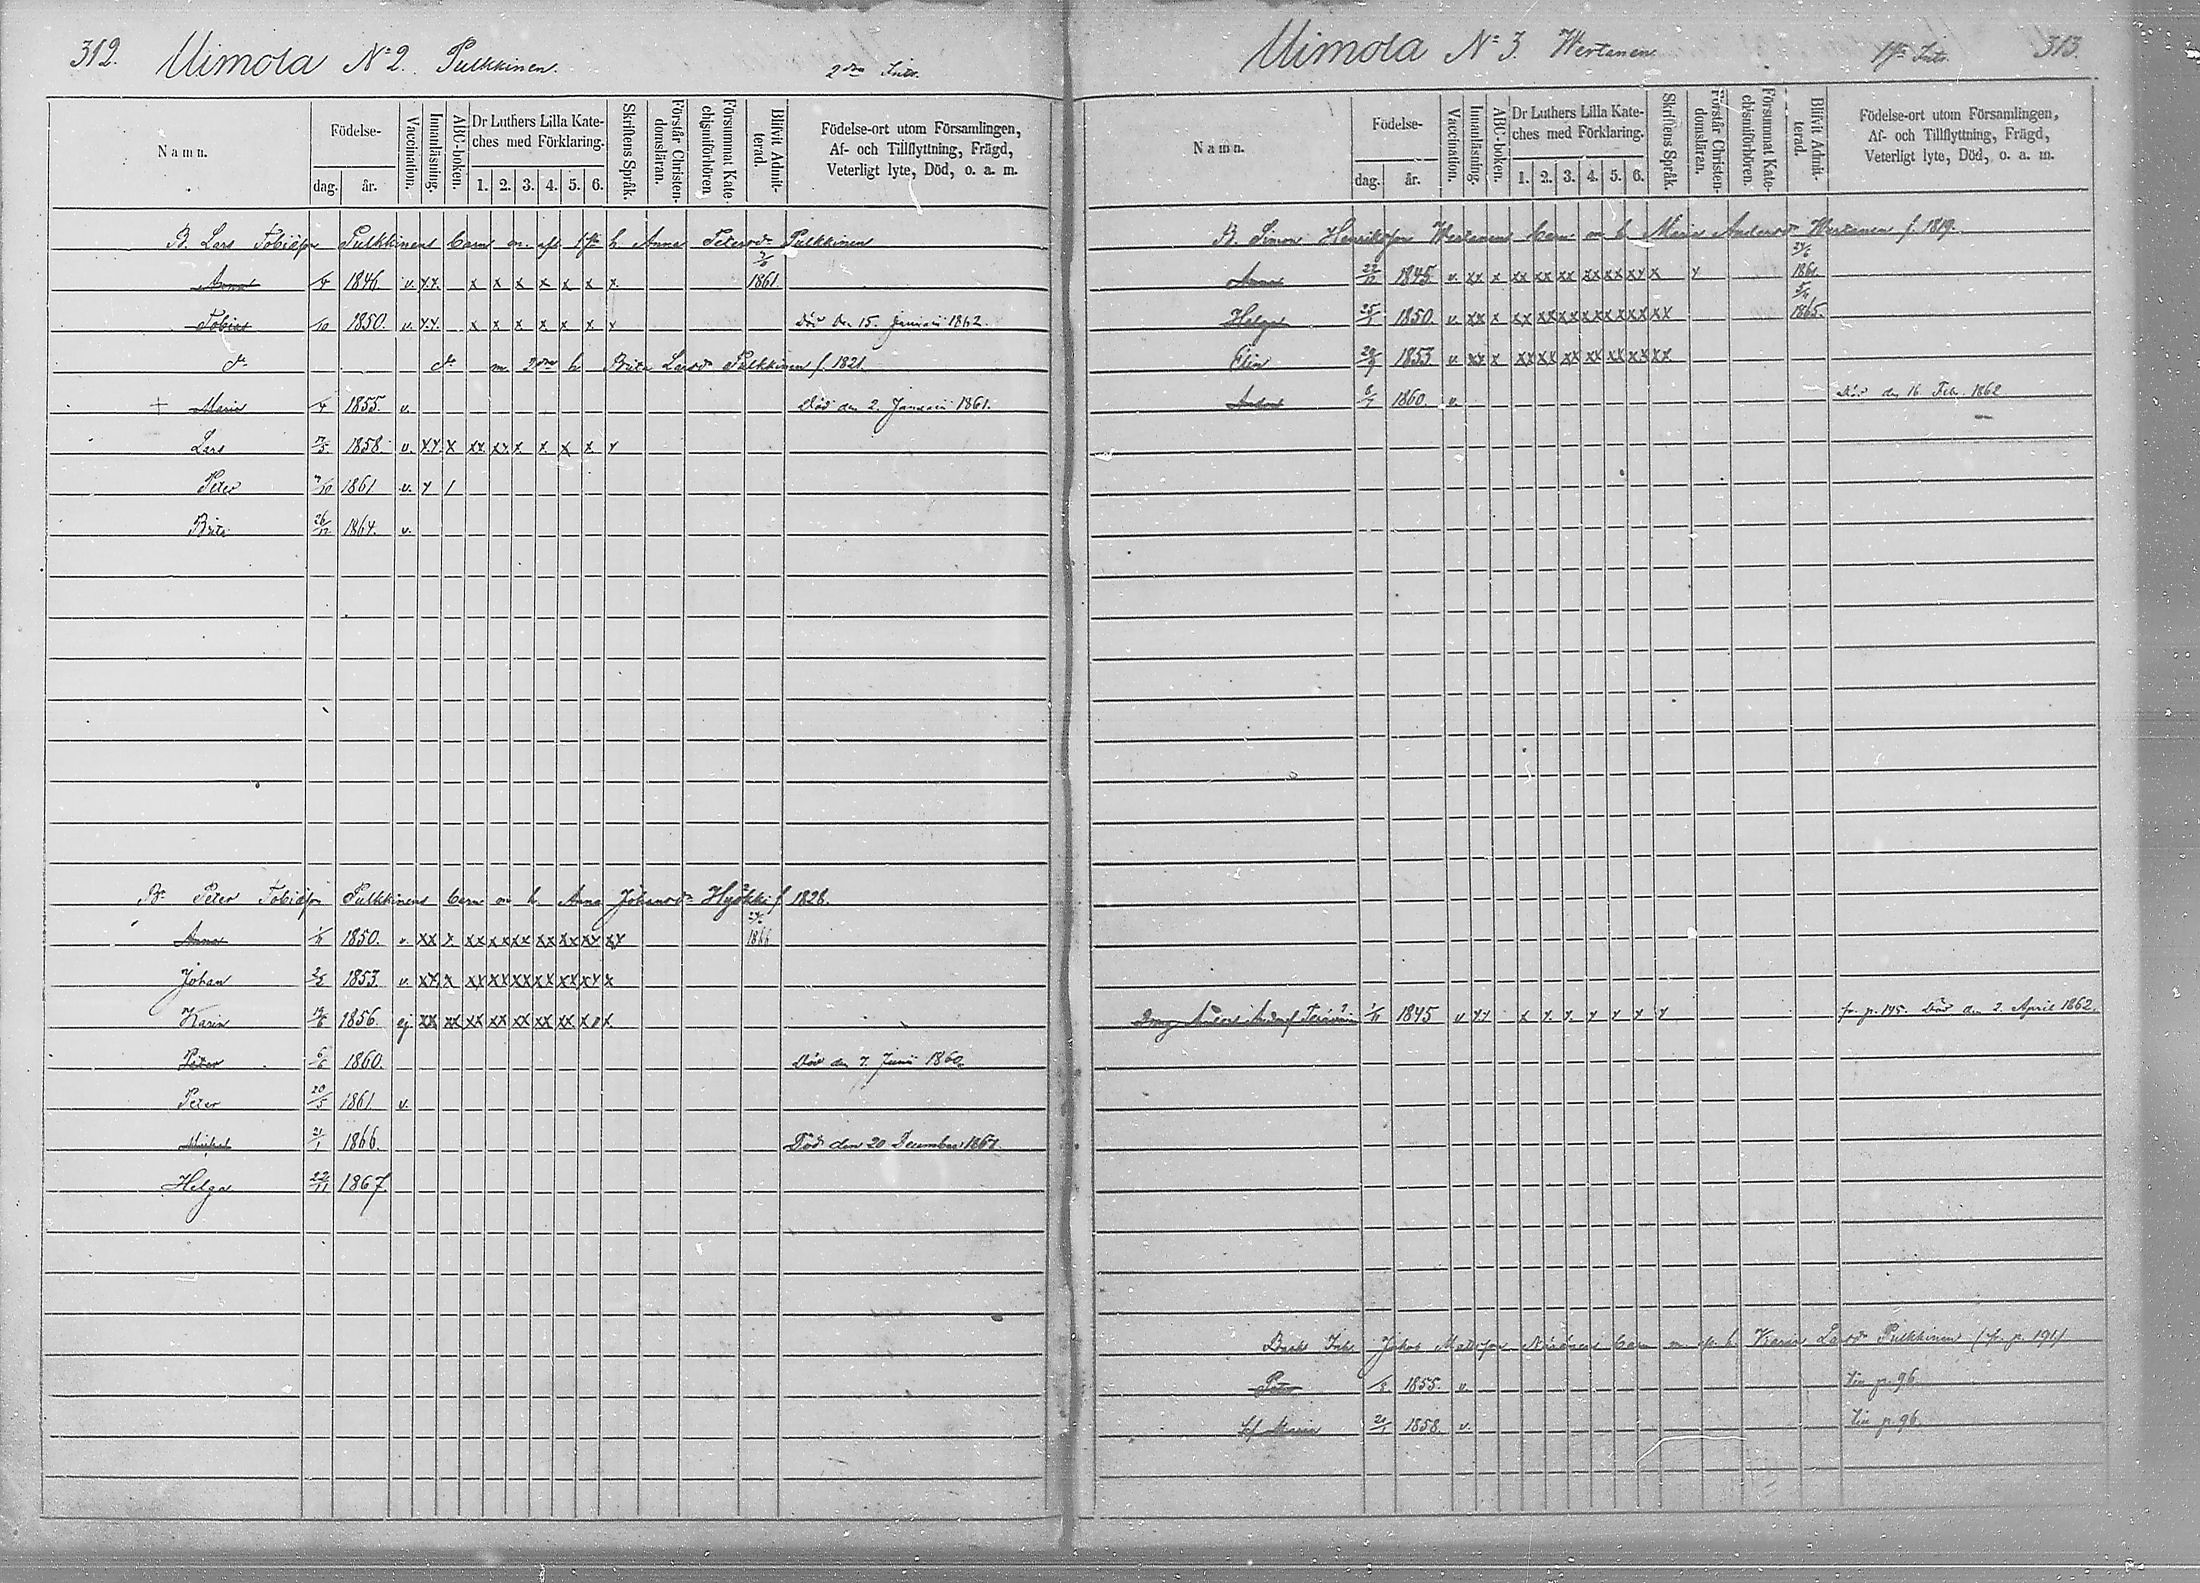 312. Uimola No 2. Pulkkinen. 2dra
Namn. Födelse- dag. år. Vaccination. Innanläsning. ABC-boken. Dr Luthers Lilla Kateches med Förklaring. 1. 2. 3. 4. 5. 6. Skriftens Språk. Förstår Christendomsläran. Försummat Katechismiförhören. Blifvit Admitterad. Födelse-ort utom Församlingen, Af- och Tillflyttning, Frägd, Veterligt lyte, Död, o. a. m.
B. Lars Tobiasson Pulkkinens barn m. afl. 1sta h. Anna Petersdr Pulkkinen
Anna /4 1846. v. x x x x x x x x x 1861.
Tobias /10 1850. v. x x x x x x x x x Död den 15. Januari 1862.
do do m 2dra h Brita Larsdr Pulkkinen f. 1821.
+ Maria /4 1855. v. Död den 2. Januari 1861.
Lars 1858. v. x x x xx xx x x x x x
Peter 7/10 1861 v. x /
Brita 26/12 1864. v.
B. Peter Tobiasson Pulkkinens barn m h. Anna Johansdr Hyökki f. 1826.
Anna 1/11 1850. v. xx x xx xx xx xx xx xx xx 1866
Johan 1853. v. xx x xx xx xx xx xx xx x
Karin 1856. ej xx xx xx xx xx xx xx x x
Peter 6/6 1860. Död den 7. Junii 1860.
Peter 20/5 1861 v.
Mikel 21/1 1866. Död den 20 December 1867.
Helga 22/11 1867.
Uimola No 3. Wertanen. 313.
Namn. Födelse- dag. år. Vaccination. Innanläsning. ABC-boken. Dr Luthers Lilla Kateches med Förklaring. 1. 2. 3. 4. 5. 6. Skriftens Språk. Förstår Christendomsläran. Försummat Katechismiförhören. Blifvit Admitterad. Födelse-ort utom Församlingen, Af- och Tillflyttning, Frägd, Veterligt lyte, Död, o. a. m.
B. Simon Henriksson Wertanens barn m h Maria Andersdr Wertanen f. 1819.
Anna 1845. v. xx x xx xx xx xx xx xx x x 1861
Helga 25/1 1850. v. xx x xx xx xx xx xx xx xx 1865.
Elin 1853 v. xx x xx xx xx xx xx xx xx
1860. v. Död den 16. Febr. 1862
Anders 1/11 1845 v x x x x x x x x x fr. p. 145. Död den 2. April 1862.
Jakob Matsson barn m h Karin Larsdr Pulkkinen (fr. p. 191)
Peter /8 1855. v. till p. 96.
Maria 1858. v. till p. 96.